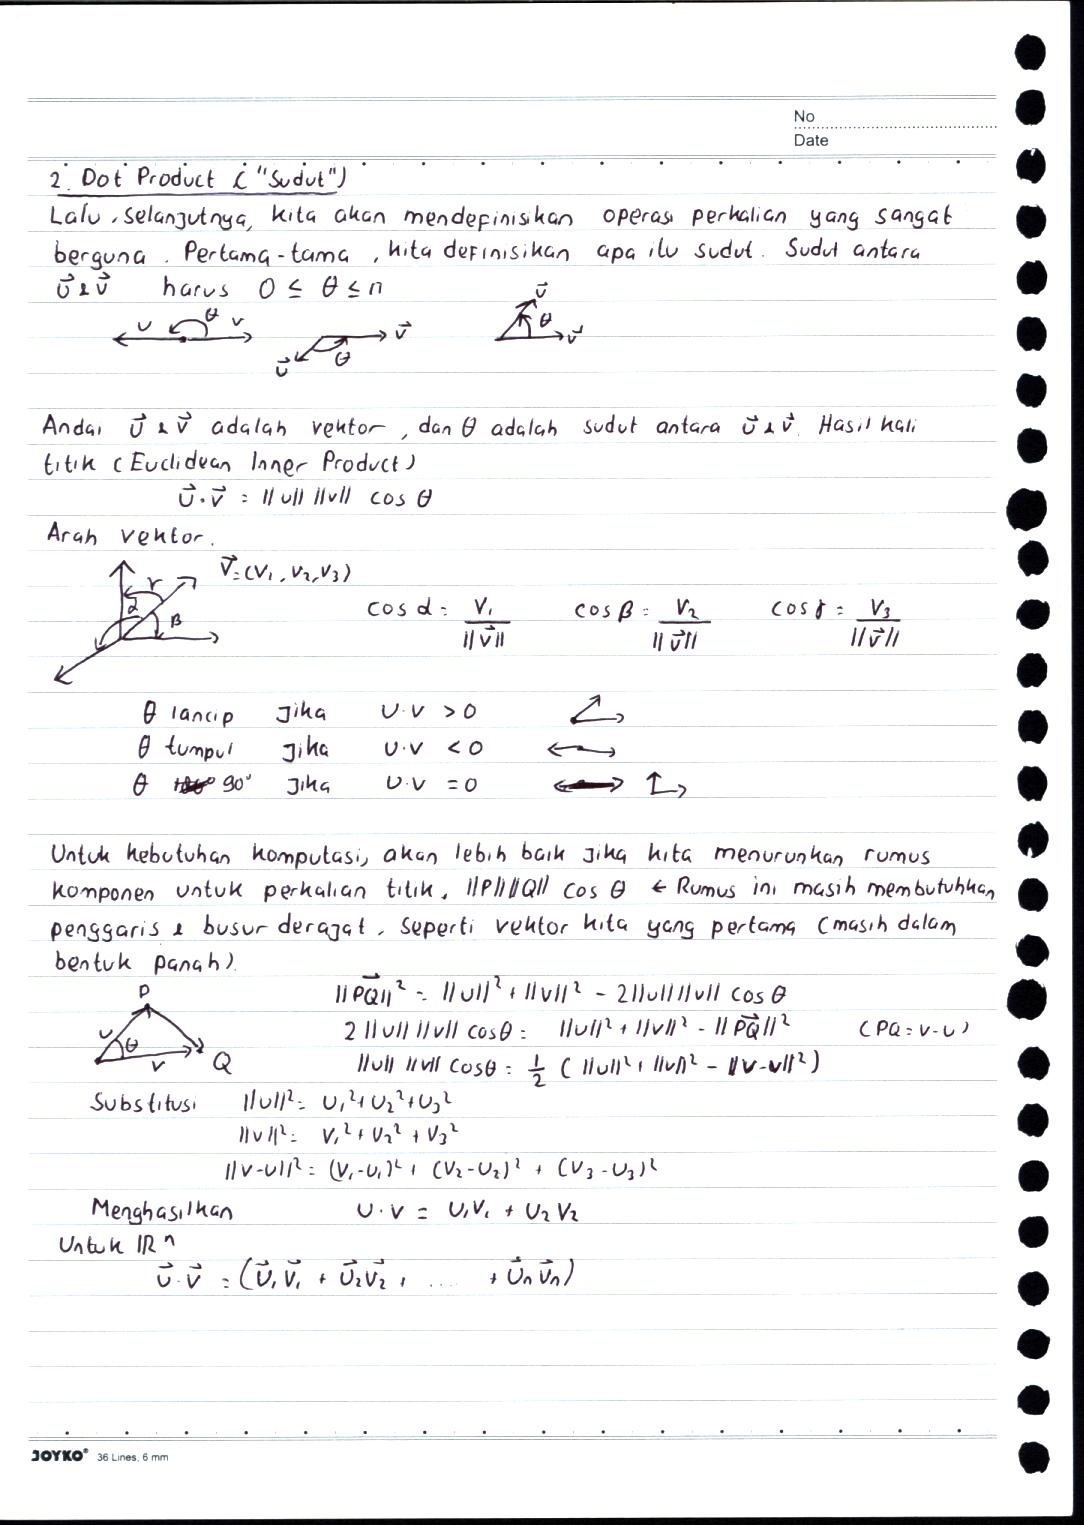 No
Date
2. Dot Product ("Sudut")
Lalu, selanjutnya, kita akan mendefinisikan operasi perkalian yang sangat
berguna. Pertama-tama, kita definisikan apa itu sudut. Sudut antara
u⃗ & v⃗ harus 0 ≤ θ ≤ π
u θ v
u⃗ θ v⃗
u⃗ θ v⃗
Andai u⃗ & v⃗ adalah vektor, dan θ adalah sudut antara u⃗ & v⃗. Hasil kali
titik (Euclidean Inner Product)
u⃗·v⃗ = ||u|| ||v|| cos θ
Arah vektor.
v⃗=(v₁, v₂, v₃)
γ α β
cos α = v₁/||v⃗|| cos β = v₂/||v⃗|| cos γ = v₃/||v⃗||
θ lancip jika u·v > 0
θ tumpul jika u·v < 0
θ 90° jika u·v = 0
Untuk kebutuhan komputasi, akan lebih baik jika kita menurunkan rumus
komponen untuk perkalian titik, ||P|| ||Q|| cos θ ← Rumus ini masih membutuhkan
penggaris & busur derajat, seperti vektor kita yang pertama (masih dalam
bentuk panah).
P u θ v Q
||PQ⃗||² = ||u||² + ||v||² - 2||u|| ||v|| cos θ
2 ||u|| ||v|| cosθ = ||u||² + ||v||² - ||PQ⃗||² (PQ = v-u)
||u|| ||v|| cosθ = 1/2 (||u||² + ||v||² - ||v-u||²)
Substitusi ||u||² = u₁²+u₂²+u₃²
||v||² = v₁² + v₂² + v₃²
||v-u||² = (v₁-u₁)² + (v₂-u₂)² + (v₃-u₃)²
Menghasilkan u·v = u₁v₁ + u₂v₂
Untuk ℝⁿ
u⃗·v⃗ = (u⃗₁v⃗₁ + u⃗₂v⃗₂ + .... + u⃗ₙv⃗ₙ)
JOYKO® 36 Lines, 6 mm